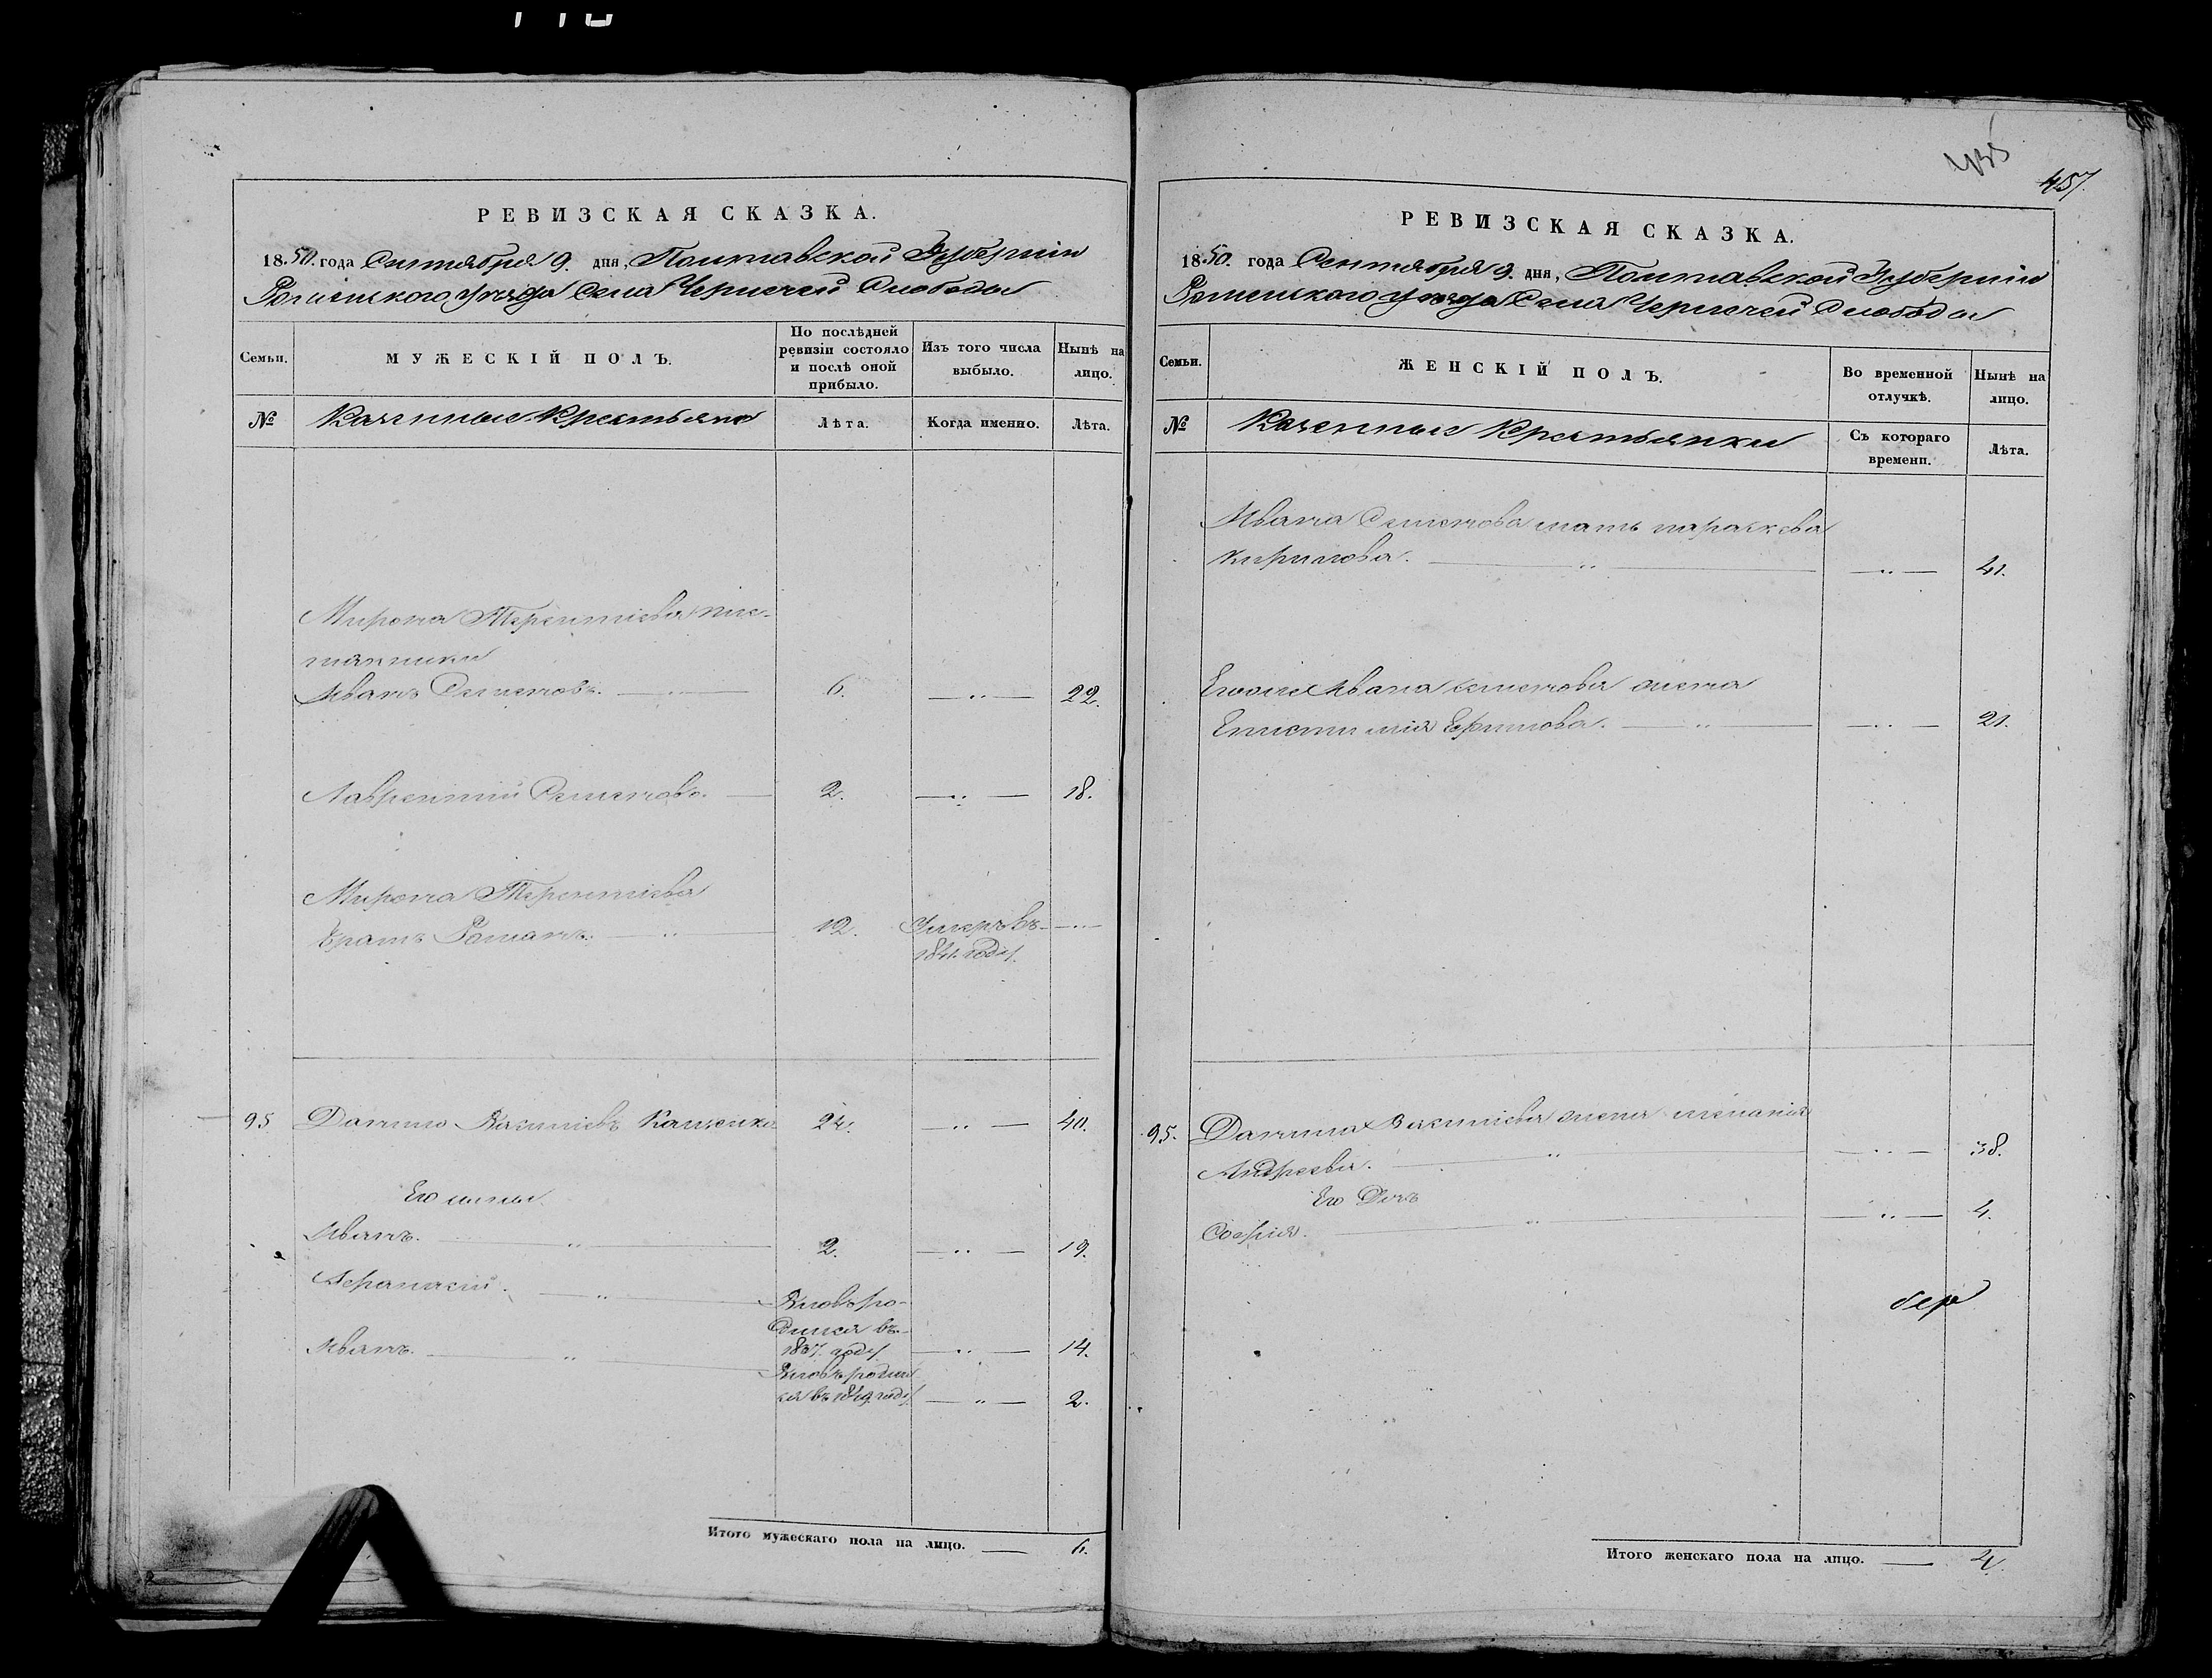 РЕВИЗСКАЯ СКАЗКА.
1850. года Сентября 9. дня, Полтавской Губерніи
Роменского уезда Села Чернечей Слободы
Семьи.
МУЖЕСКІЙ ПОЛЪ.
По послѣдней ревизіи состояло и послѣ оной прибыло.
Изъ того числа выбыло.
Нынѣ на лицо.
№
Казенные Крестьяне
Лѣта.
Когда именно.
Лѣта.
Мирона Терентіева пле-
мянники
Иванъ Семеновъ. 6. 22.
Лаврентий Семеновъ. 2. 18.
Мирона Терентіева
братъ Романъ. 12. Умеръ въ
1841. году.
95 Данило Василіевъ 24. 40.
Его сыны
Иванъ. 2. 19.
Афанасий. Вновь ро-
дился въ
1837. году 14.
Иванъ. Вновь родил
ся въ 1849 году 2.
Итого мужескаго пола на лицо. 6.
457.
РЕВИЗСКАЯ СКАЗКА.
1850. года Сентября 9. дня, Полтавской Губерніи
Роменского уезда Села Чернечей Слободы
Семьи.
ЖЕНСКІЙ ПОЛЪ.
Во временной отлучкѣ.
Нынѣ на лицо.
№
Казенные Крестьянки
Съ котораго времени.
Лѣта.
Ивана Семенова мать параскева
Кирилова. 41.
Ивана Семенова жена
Епистимия Ефимова. 21.
95. Данила Василіева жена меланія
Андреева. 38.
Его Дочь
Софія. 4.
Итого женскаго пола на лицо. 4